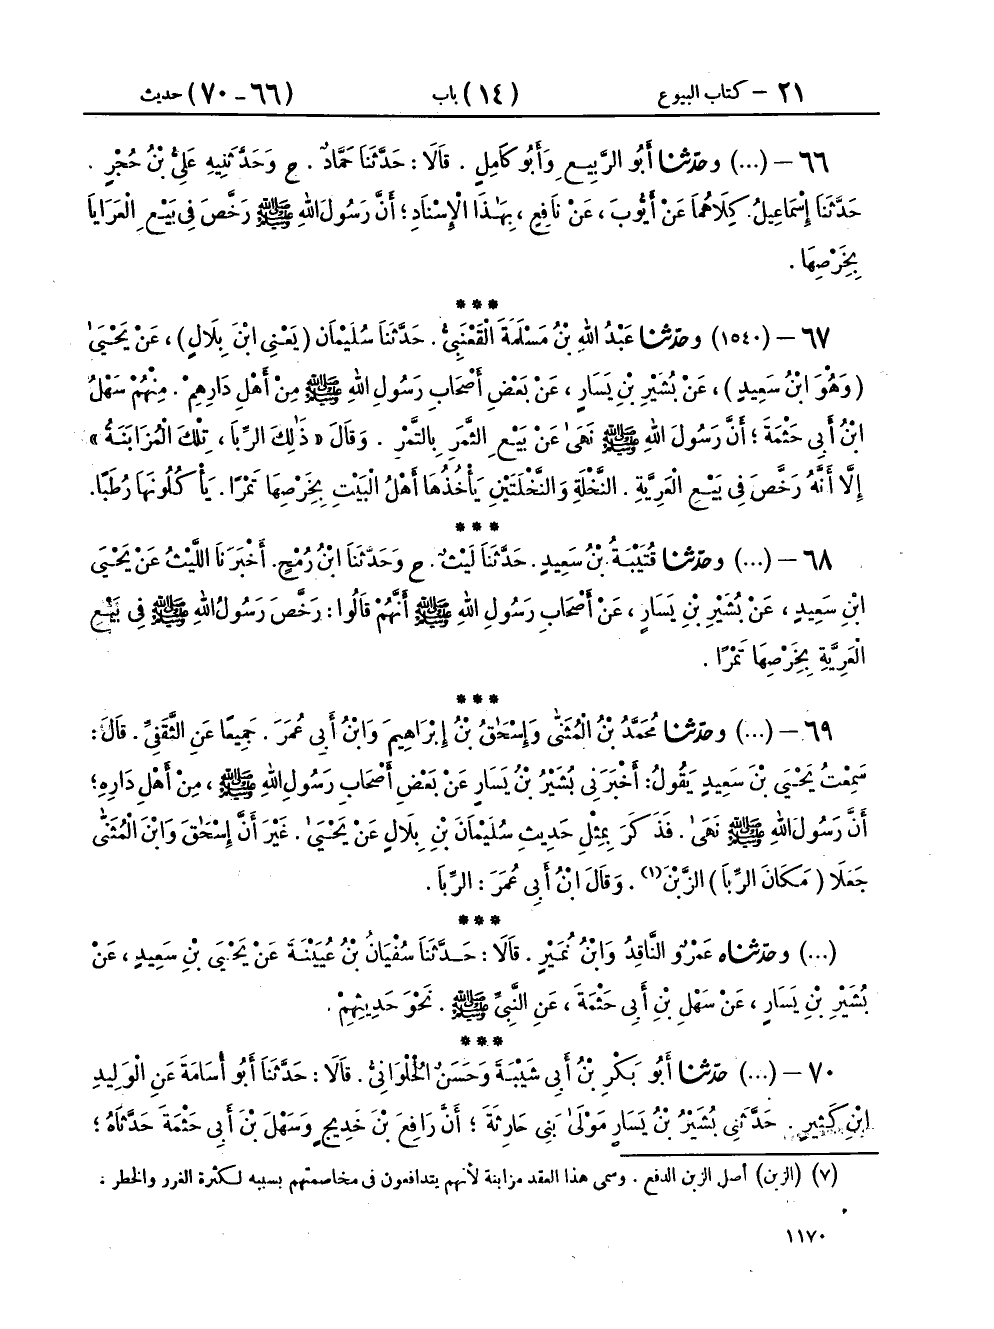 ٢١ - كتاب البيوع (١٤) باب (٦٦-٧٠) حديث
٦٦ – (...) وحَدَّثَنَا أَبُو الرَّبِيعِ وَأَبُو كَامِلٍ . قَالَا : حَدَّثَنَا حَمَّادٌ . ح وَحَدَّثَنِيهِ عَلِيُّ بْنُ حُجْرٍ .
حَدَّثَنَا إِسْمَاعِيلُ. كِلَاهُمَا عَنْ أَيُّوبَ ، عَنْ نَافِعٍ ، بِهَٰذَا الْإِسْنَادِ ؛ أَنَّ رَسُولَ اللهِ ﷺ رَخَّصَ فِي بَيْعِ الْعَرَايَا
بِخَرْصِهَا .
***
٦٧ – (١٥٤٠) وحَدَّثَنَا عَبْدُ اللهِ بْنُ مَسْلَمَةَ الْقَعْنَبِيُّ . حَدَّثَنَا سُلَيْمَان ( يَعْنِي ابْنَ بِلَالٍ ) ، عَنْ يَحْيَىٰ
( وَهُوَ ابْنُ سَعِيدٍ ) ، عَنْ بُشَيْرِ بْنِ يَسَارٍ ، عَنْ بَعْضِ أَصْحَابِ رَسُولِ اللهِ ﷺ مِنْ أَهْلِ دَارِهِمْ . مِنْهُمْ سَهْلُ
ابْنُ أَبِي حَثْمَةَ ؛ أَنَّ رَسُولَ اللهِ ﷺ نَهَىٰ عَنْ بَيْعِ الثَّمَرِ بِالتَّمْرِ . وَقَالَ « ذَٰلِكَ الرِّبَا ، تِلْكَ الْمُزَابَنَةُ »
إِلَّا أَنَّهُ رَخَّصَ فِي بَيْعِ الْعَرِيَّةِ . النَّخْلَةِ وَالنَّخْلَتَيْنِ يَأْخُذُهَا أَهْلُ الْبَيْتِ بِخَرْصِهَا تَمْرًا . يَأْكُلُونَهَا رُطَبًا.
***
٦٨ – (...) وحَدَّثَنَا قُتَيْبَةُ بْنُ سَعِيدٍ . حَدَّثَنَا لَيْثٌ . ح وَحَدَّثَنَا ابْنُ رُمْحٍ. أَخْبَرَنَا اللَّيْثُ عَنْ يَحْيَىٰ
ابْنِ سَعِيدٍ ، عَنْ بُشَيْرِ بْنِ يَسَارٍ ، عَنْ أَصْحَابِ رَسُولِ اللهِ ﷺ أَنَّهُمْ قَالُوا : رَخَّصَ رَسُولُ اللهِ ﷺ فِي بَيْعِ
الْعَرِيَّةِ بِخَرْصِهَا تَمْرًا .
***
٦٩ – (...) وحَدَّثَنَا مُحَمَّدُ بْنُ الْمُثَنَّىٰ وَإِسْحَاقُ بْنُ إِبْرَاهِيمَ وَابْنُ أَبِي عُمَرَ . جَمِيعًا عَنِ الثَّقَفِيِّ . قَالَ :
سَمِعْتُ يَحْيَىٰ بْنَ سَعِيدٍ يَقُولُ: أَخْبَرَنِي بُشَيْرُ بْنُ يَسَارٍ عَنْ بَعْضِ أَصْحَابِ رَسُولِ اللهِ ﷺ ، مِنْ أَهْلِ دَارِهِ؛
أَنَّ رَسُولَ اللهِ ﷺ نَهَىٰ . فَذَكَرَ بِمِثْلِ حَدِيثِ سُلَيْمَانَ بْنِ بِلَالٍ عَنْ يَحْيَىٰ . غَيْرَ أَنَّ إِسْحَاقَ وَابْنَ الْمُثَنَّىٰ
جَعَلَا ( مَكَانَ الرِّبَا ) الزَّبْنَ (١) . وَقَالَ ابْنُ أَبِي عُمَرَ : الرِّبَا .
***
(...) وحَدَّثَنَاه عَمْرٌو النَّاقِدُ وَابْنُ نُمَيْرٍ . قَالَا : حَدَّثَنَا سُفْيَانُ بْنُ عُيَيْنَةَ عَنْ يَحْيَىٰ بْنِ سَعِيدٍ ، عَنْ
بُشَيْرِ بْنِ يَسَارٍ ، عَنْ سَهْلِ بْنِ أَبِي حَثْمَةَ ، عَنِ النَّبِيِّ ﷺ . نَحْوَ حَدِيثِهِمْ .
***
٧٠ – (...) حَدَّثَنَا أَبُو بَكْرِ بْنُ أَبِي شَيْبَةَ وَحَسَنٌ الْحُلْوَانِيُّ . قَالَا : حَدَّثَنَا أَبُو أُسَامَةَ عَنِ الْوَلِيدِ
ابْنِ كَثِيرٍ . حَدَّثَنِي بُشَيْرُ بْنُ يَسَارٍ مَوْلَىٰ بَنِي حَارِثَةَ ؛ أَنَّ رَافِعَ بْنَ خَدِيجٍ وَسَهْلَ بْنَ أَبِي حَثْمَةَ حَدَّثَاهُ ؛
(٧) (الزبن) أصل الزبن الدفع . وسمى هذا العقد مزابنة لأنهم يتدافعون فى مخاصمتهم بسببه لكثرة الغرر والخطر .
١١٧٠